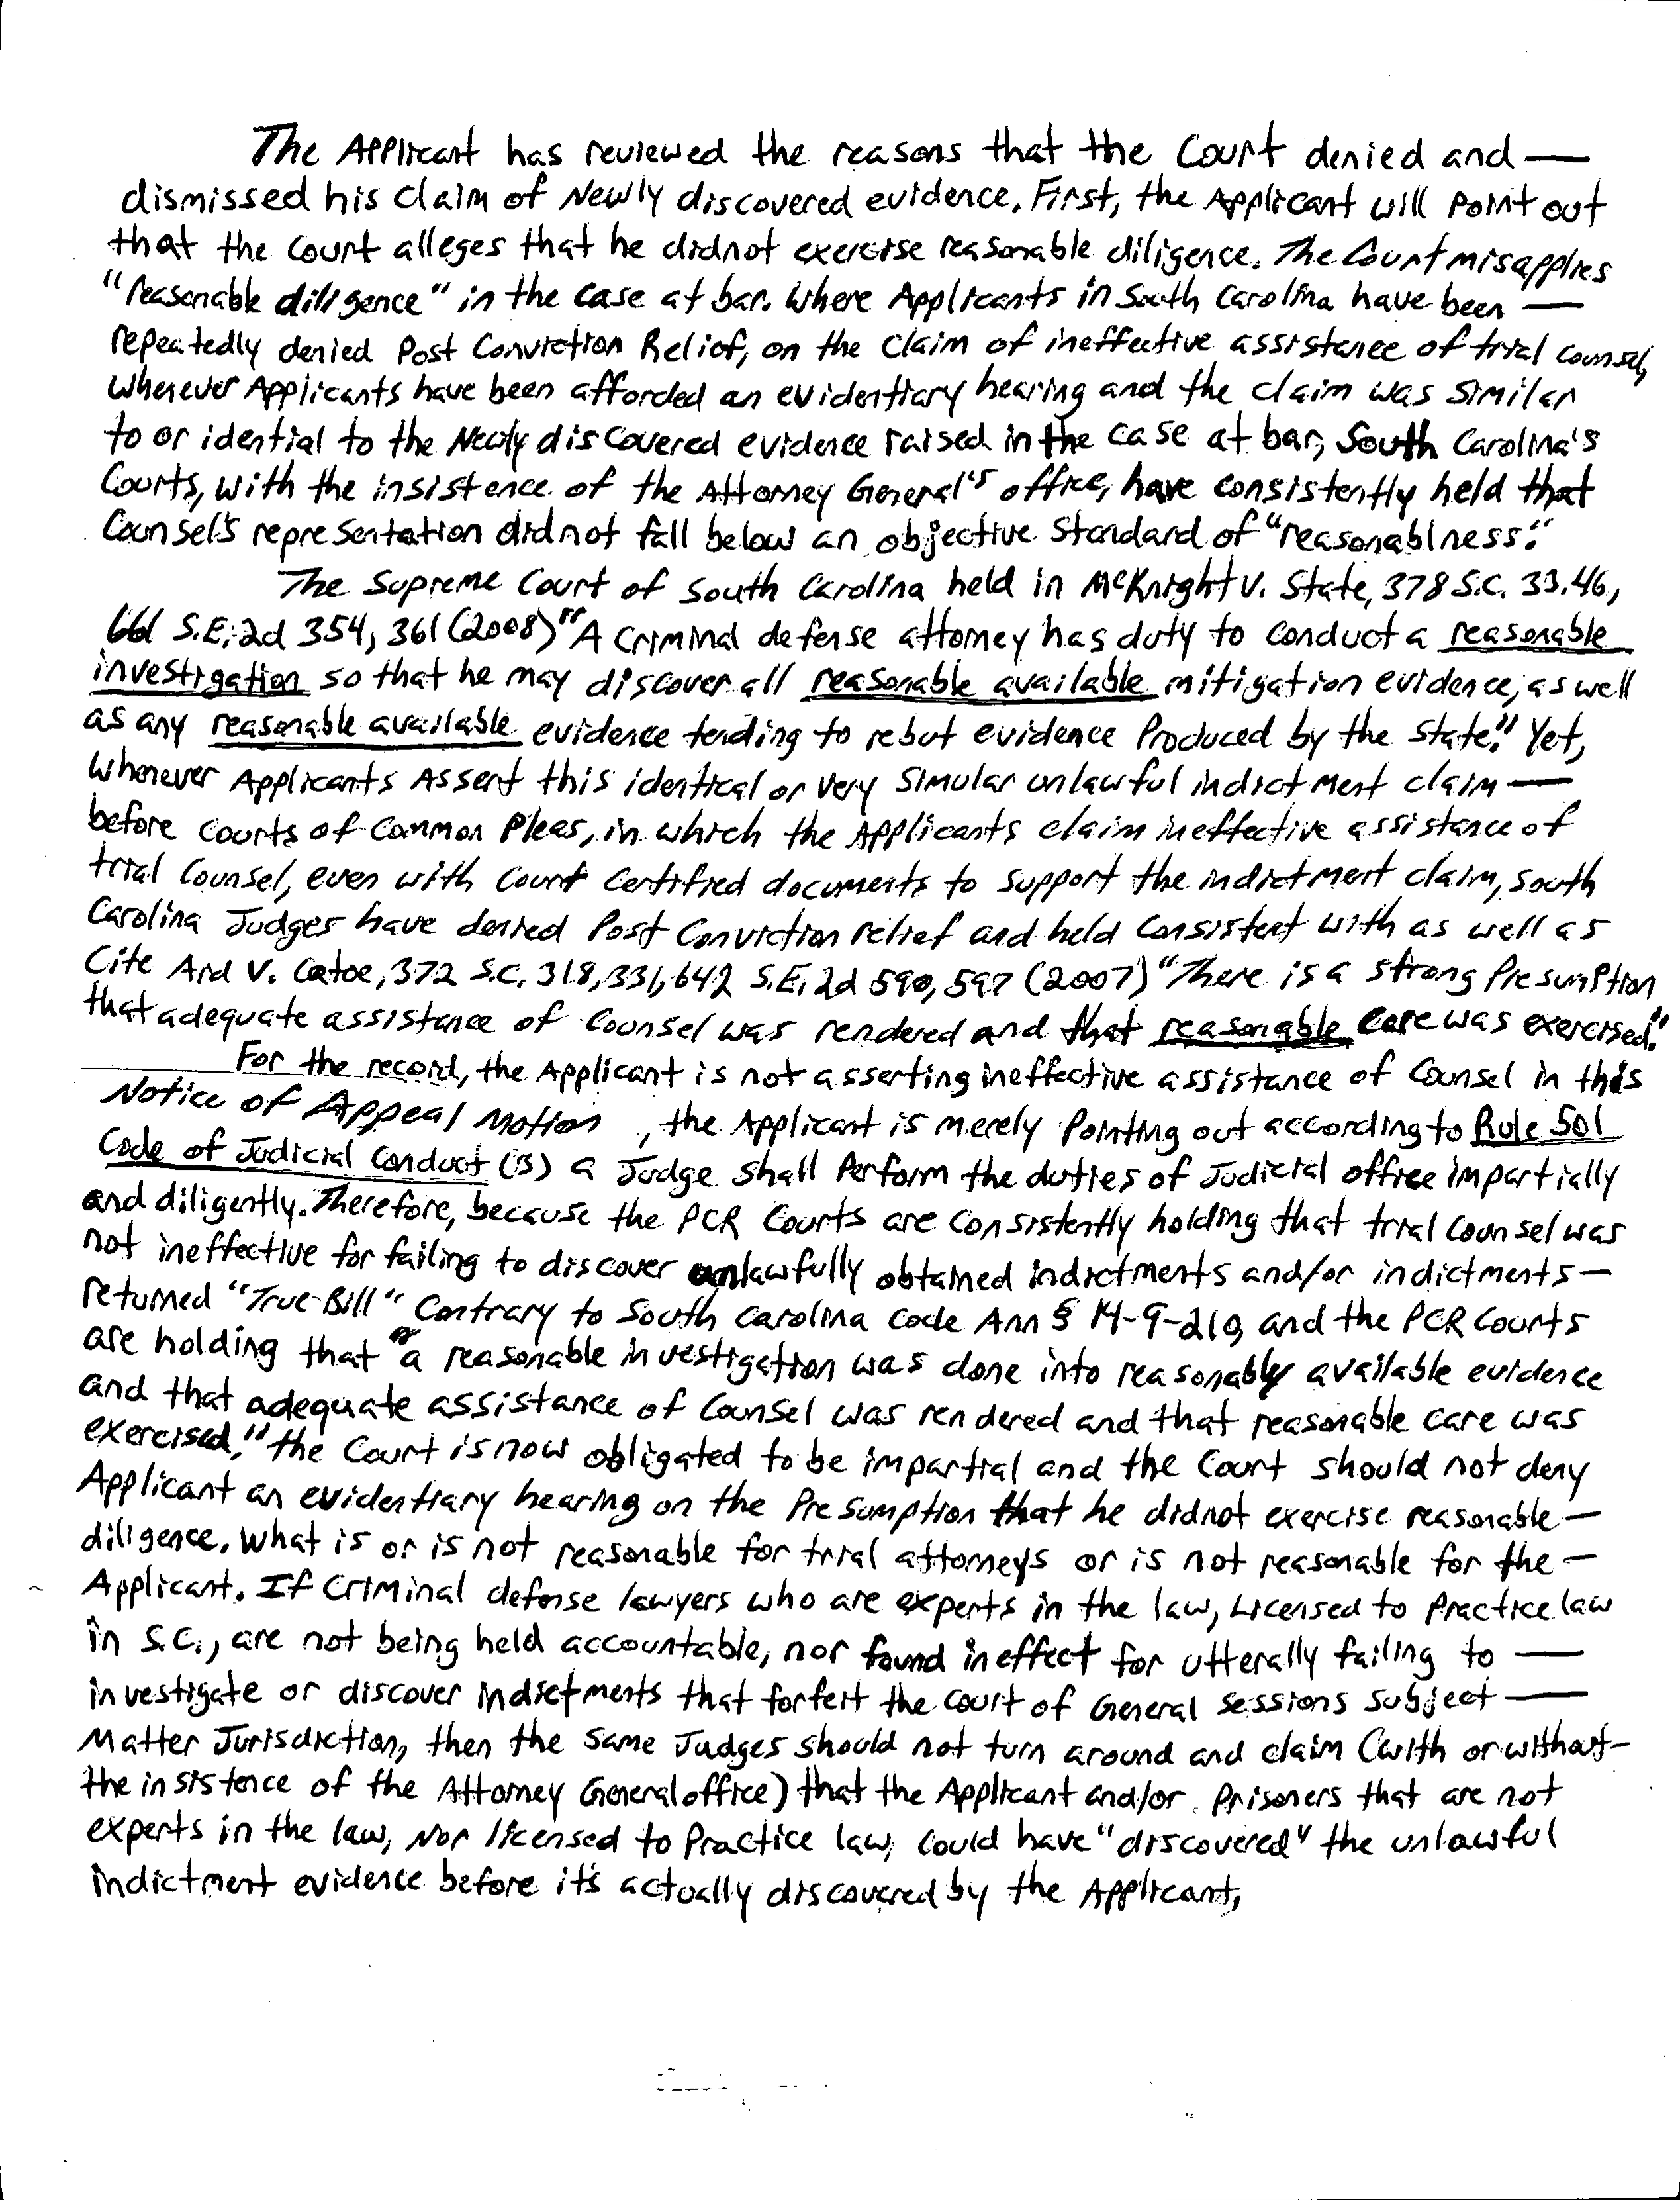 The Applicant has reviewed the reasons that the Court denied and —
dismissed his claim of Newly discovered evidence. First, the Applicant will point out
that the Court alleges that he didnot exercise reasonable diligence. The Court misapplies
"reasonable diligence" in the case at bar. Where Applicants in South Carolina have been —
repeatedly denied Post Conviction Relief, on the claim of ineffective assistance of trial counsel,
Wherever Applicants have been afforded an evidentiary hearing and the claim was similar
to or idential to the Newly discovered evidence raised in the case at bar, South Carolina's
Courts, with the insistence of the Attorney General's office, have consistently held that
Counsel's representation didnot fall below an objective standard of "reasonablness."
The Supreme Court of South Carolina held in McKnight v. State, 378 S.C. 33.46,
661 S.E.2d 354, 361 (2008) "A Criminal defense attorney has duty to conduct a reasonable
investigation so that he may discover all reasonable available mitigation evidence, as well
as any reasonable available evidence tending to rebut evidence Produced by the State." Yet,
whenever Applicants Assert this identical or very simular unlawful indictment claim —
before Courts of Common Pleas, in which the Applicants claim ineffective assistance of
trial Counsel, even with Court Certified documents to support the indictment claim, South
Carolina Judges have denied Post Conviction relief and held Consistent with as well as
Cite Ard v. Catoe, 372 S.C. 318, 331, 642 S.E.2d 590, 597 (2007) "There is a strong Presumption
that adequate assistance of Counsel was rendered and that reasonable care was exercised."
For the record, the Applicant is not asserting ineffective assistance of Counsel in this
Notice of Appeal Motion, the Applicant is merely Pointing out according to Rule 501
Code of Judicial Conduct (3) a Judge shall Perform the duties of Judicial office impartially
and diligently. Therefore, because the PCR Courts are consistently holding that trial Counsel was
not ineffective for failing to discover unlawfully obtained indictments and/or indictments —
returned "True-Bill" Contrary to South Carolina Code Ann § 14-9-210, and the PCR Courts
are holding that "a reasonable investigation was done into reasonably available evidence
and that adequate assistance of Counsel was rendered and that reasonable care was
exercised," the Court is now obligated to be impartial and the Court should not deny
Applicant an evidentiary hearing on the Presumption that he didnot exercise reasonable —
diligence. What is or is not reasonable for trial attorneys or is not reasonable for the —
Applicant. If Criminal defense lawyers who are experts in the law, Licensed to Practice law
in S.C., are not being held accountable, nor found ineffect for utterally failing to —
investigate or discover indictments that forfeit the Court of General Sessions Subject —
Matter Jurisdiction, then the same Judges should not turn around and claim (with or without —
the insistence of the Attorney General office) that the Applicant and/or Prisoners that are not
experts in the law, Nor licensed to Practice law, Could have "discovered" the unlawful
indictment evidence before it's actually discovered by the Applicant,